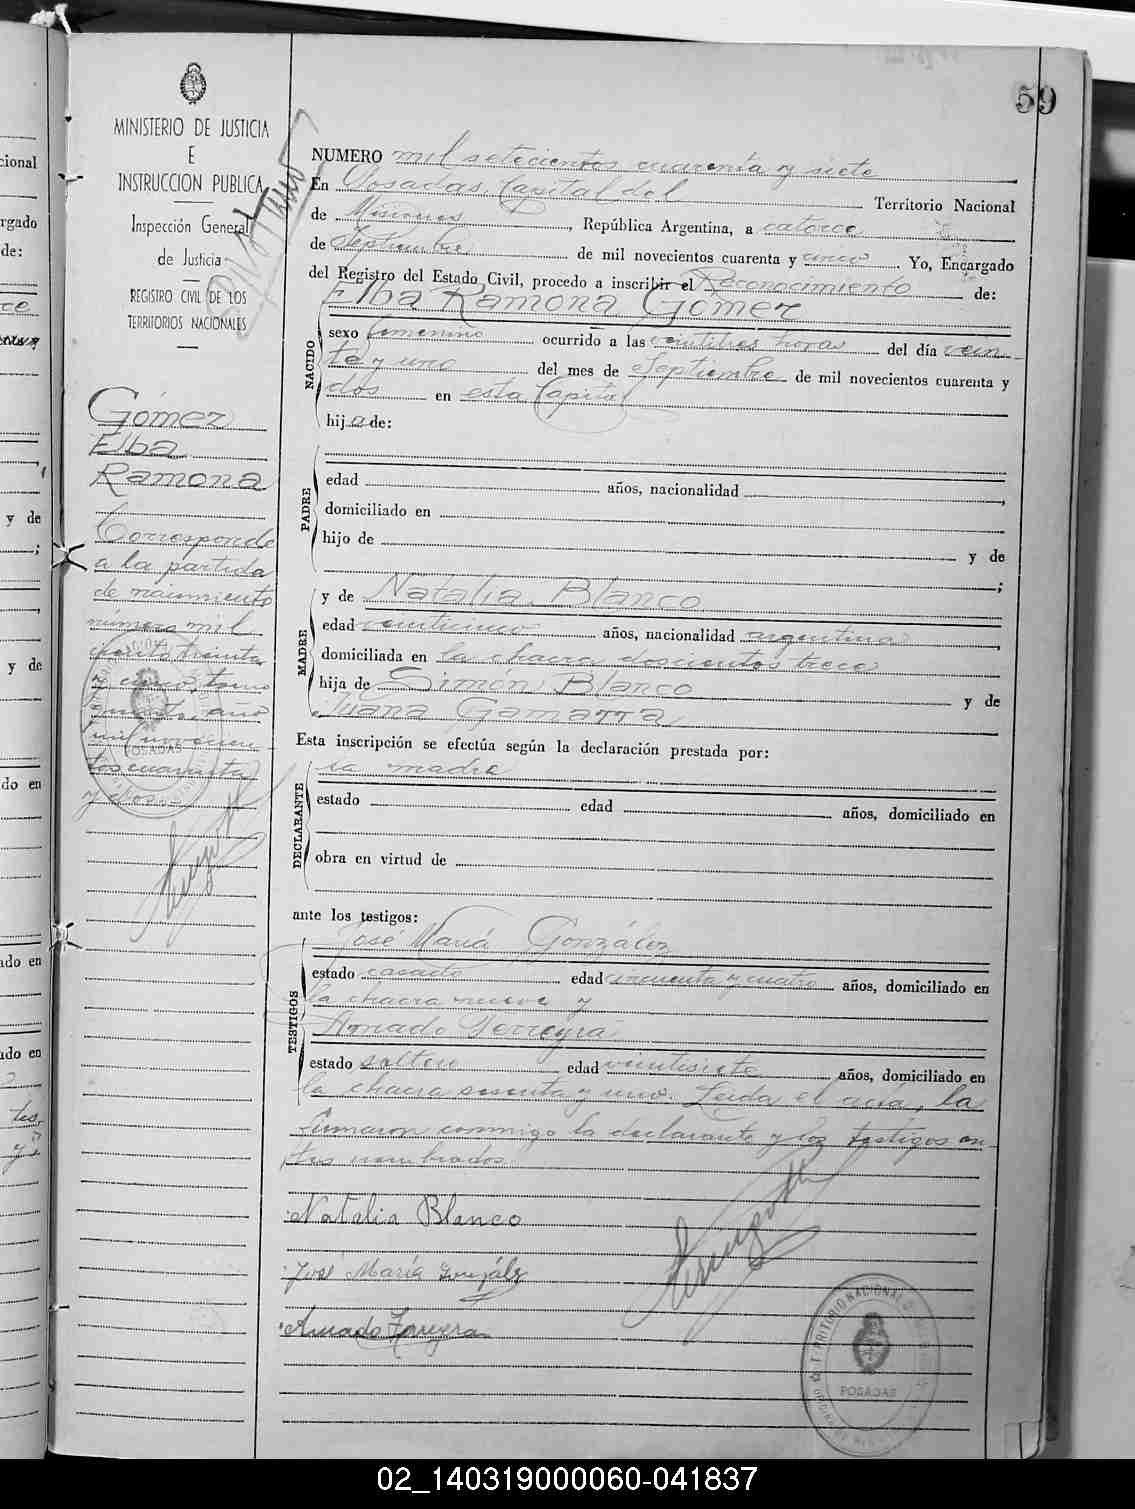 59
MINISTERIO DE JUSTICIA
E
INSTRUCCION PUBLICA
Inspección General
de Justicia
REGISTRO CIVIL DE LOS
TERRITORIOS NACIONALES
Gómez
Elba
Ramona
Corresponde
a la partida
de nacimiento
número mil
treinta
y cinco, tomo
año
mil novecien-
tos cuarenta
y
NUMERO mil setecientos cuarenta y siete
En Posadas, Capital del Territorio Nacional
de Misiones, República Argentina, a catorce
de Septiembre de mil novecientos cuarenta y cinco. Yo, Encargado
del Registro del Estado Civil, procedo a inscribir el Reconocimiento de:
Elba Ramona Gómez
NACIDO
sexo femenino ocurrido a las veintitres horas del día vein-
te y uno del mes de Septiembre de mil novecientos cuarenta y
dos en esta Capital
hija de:
PADRE
edad años, nacionalidad
domiciliado en
hijo de y de
;
MADRE
y de Natalia Blanco
edad veinticinco años, nacionalidad argentina
domiciliada en la chacra doscientos trece
hija de Simón Blanco y de
Juana Gamarra
Esta inscripción se efectúa según la declaración prestada por:
la madre
DECLARANTE
estado edad años, domiciliado en
obra en virtud de
ante los testigos:
José María González
TESTIGOS
estado casado edad cincuenta y cuatro años, domiciliado en
la chacra nueve y
Amado Ferreyra
estado soltero edad veintisiete años, domiciliado en
la chacra sesenta y uno. Leída el acta, la
firmaron conmigo la declarante y los testigos an-
tes nombrados.
Natalia Blanco
José María González
Amado Ferreyra
TERRITORIO NACIONAL
POSADAS
POSADAS
02_140319000060-041837